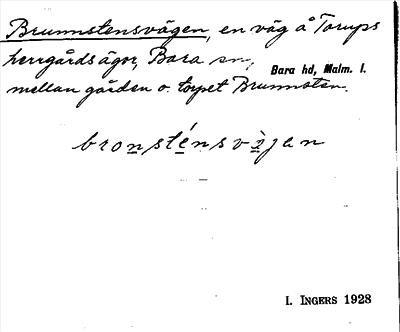 Brunnstensvägen, en väg å Torups
herrgårds ägor, Bara sn,
Bara hd, Malm. l.
mellan gården o. torpet Brunnsten.
bronsténsvὰjan
I. INGERS 1928